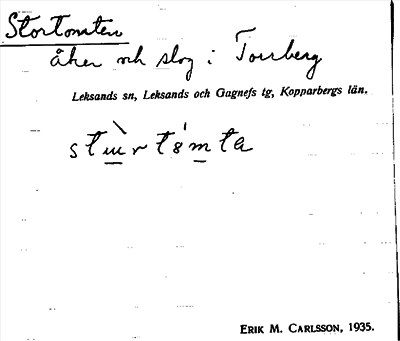 Stortomten
åker och slog i Torrberg
Leksands sn, Leksands och Gagnefs tg, Kopparbergs län.
ERIK M. CARLSSON, 1935.